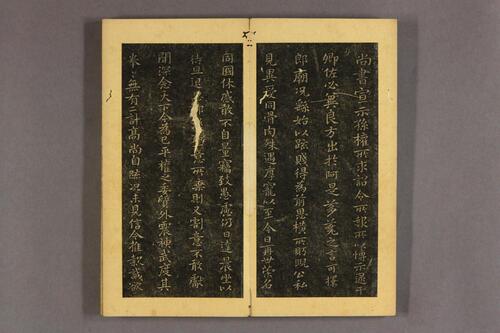 尚書宣示孫權所求詔令所報所以博示逮于
卿佐必冀良方出於阿是芻蕘之言可擇
郎廟況繇始以疏賤得為前恩橫所盱睨公私
見異愛同骨肉殊遇厚寵以至今日再世榮名
同國休慼敢不自量竊致愚慮仍日達晨坐以
待旦退意所棄則又割意不敢獻
聞深念天下今為已平權之委質外震神武度其
拳無有二計高尚自疏況未見信今推款誠欲